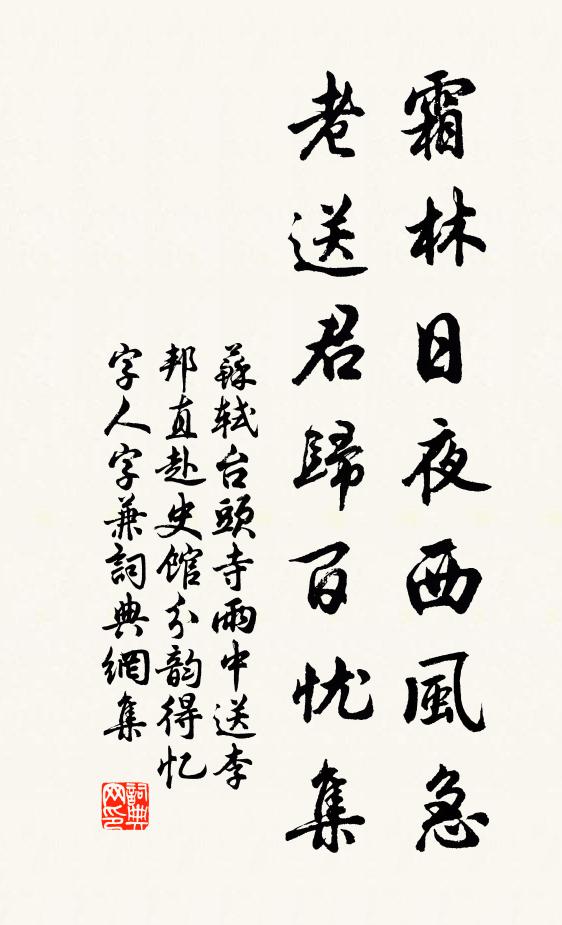 霜林日夜西風急
老送君歸百忧集
蘇轼台頭寺雨中送李
邦直赴史館分韵得忆
字人字兼詞典網集
詞典网印